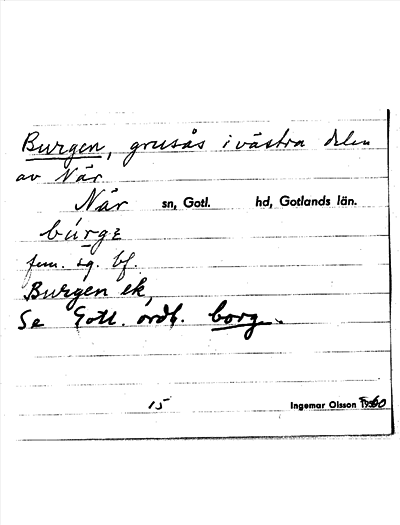 Burgen, grusås i västra delen
av När
När sn, Gotl. hd, Gotlands län.
búrgɛ
fem. sg. bf.
Burgen ek,
Se Gotl. ordb. borg.
15 Ingemar Olsson